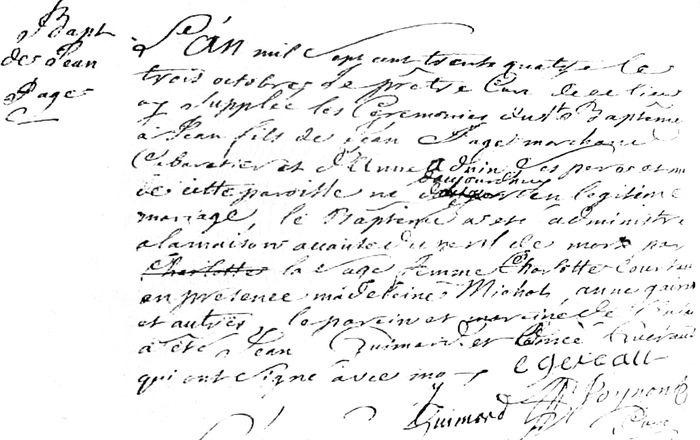 Bapt
des Jean
Pages
L'an mil sept cent trente quatre le
trois octobres Je prêtre Curé de ce lieu
ay Supplée les Cérémonies du st Baptême
a Jean fils de Jean Pages marchand
Cabaretier et d'Anne
de cette paroisse ne aujourdhuy en legitime
mariage, le Baptême a eté administré
a la maison a cause du peril de mort par
Charlotte la Sage femme Charlotte
en présence madelaine Michol, anne
et autres, le parein et mareine de
a été Jean Guimard et
qui ont Signé avec moy
egereau
Guimard